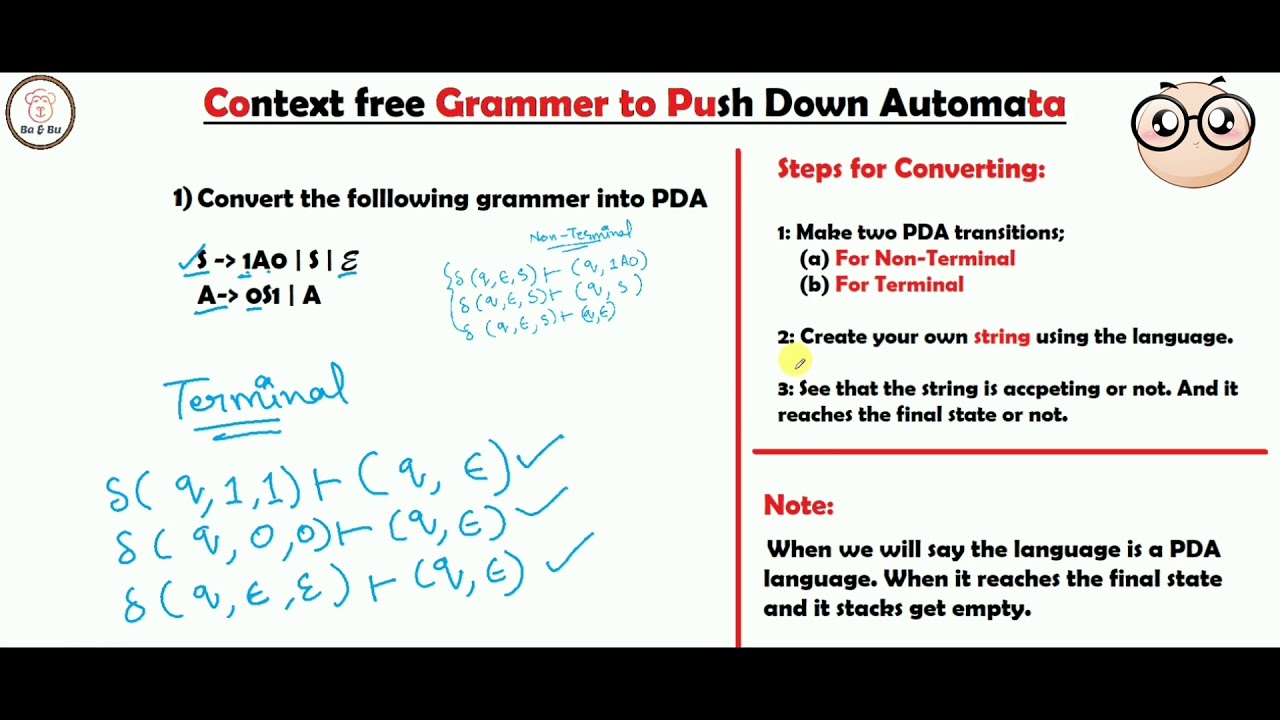 Context free Grammer to Push Down Automata
Ba & Bu
1) Convert the folllowing grammer into PDA
S -> 1A0 | S | ℰ
A-> 0S1 | A
Non-Terminal
δ(q, ϵ, S) ⊢ (q, 1A0)
δ(q, ϵ, S) ⊢ (q, S)
δ(q, ϵ, S) ⊢ (q, ϵ)
Terminal
δ(q, 1, 1) ⊢ (q, ϵ) ✓
δ(q, 0, 0) ⊢ (q, ϵ) ✓
δ(q, ϵ, ε) ⊢ (q, ϵ) ✓
Steps for Converting:
1: Make two PDA transitions;
(a) For Non-Terminal
(b) For Terminal
2: Create your own string using the language.
3: See that the string is accpeting or not. And it
reaches the final state or not.
Note:
When we will say the language is a PDA
language. When it reaches the final state
and it stacks get empty.